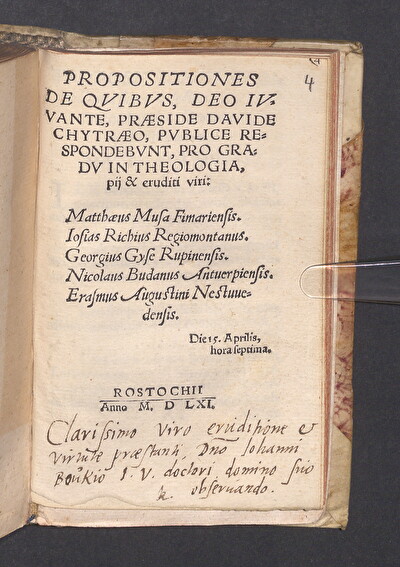 4
PROPOSITIONES
DE QVIBVS, DEO IV-
VANTE, PRÆSIDE DAVIDE
CHYTRÆO, PVBLICE RE-
SPONDEBVNT, PRO GRA-
DV IN THEOLOGIA,
pij & eruditi viri:
Matthæus Musa Fimariensis.
Iosias Richius Regiomontanus.
Georgius Gyse Rupinensis.
Nicolaus Budanus Antuerpiensis.
Erasmus Augustini Nestuue-
densis.
Die 15. Aprilis,
hora septima.
ROSTOCHII
Anno M. D LXI.
Clarissimo viro eruditione et
virtute præstanti, Dno Iohanni
Boukio I. V. doctori domino suo
observando.